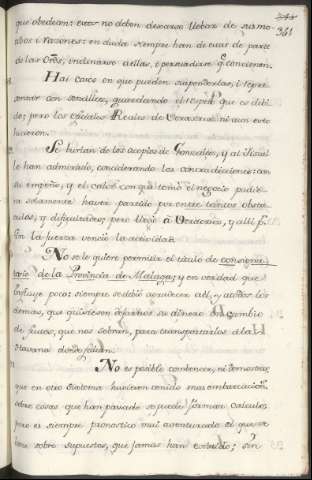 361
que obedecen: estos no deben descarse llebar de su mo
tibos i razones: en duda siempre han de estar de parte
de las Orñs, inclinarse a ellas, y persuadirse
Hai casos en que pueden suspenderlas, i repre
sentar con sencillez, guardando el respeto que es debi
do; pero los oficiales Reales de Veracruz ni aun esto
hicieron.
Se burlan de los acopios de Gonzales, y al
le han admirado, considerando las contradiciones: con
su empeño, y el calor con que tomó el negocio pudie
ra solamente haver partido por entre tantos obsta
culos, y dificultades; pero llegó à Veracruz, y alli
fin la fuerza venció la actividad.
No se le quiere permitir el titulo de consigna
tario de la Provincia de Malaga; y en verdad que
influye poco: siempre se debió agradecer a el, y a todos los
demas, que quisiesen dejarnos su dinero en cambio
de frutos, que nos sobran, para transportarlos a la
Havana donde faltan.
No es posible contener, ni demostrar
que en otro sistema huviesen venido mas embarcaciones
sobre cosas que han pasado se puede formar calculo,
pero es siempre pronostico mui aventurado el que se
hace sobre supuestos, que jamas han exîstido; sin